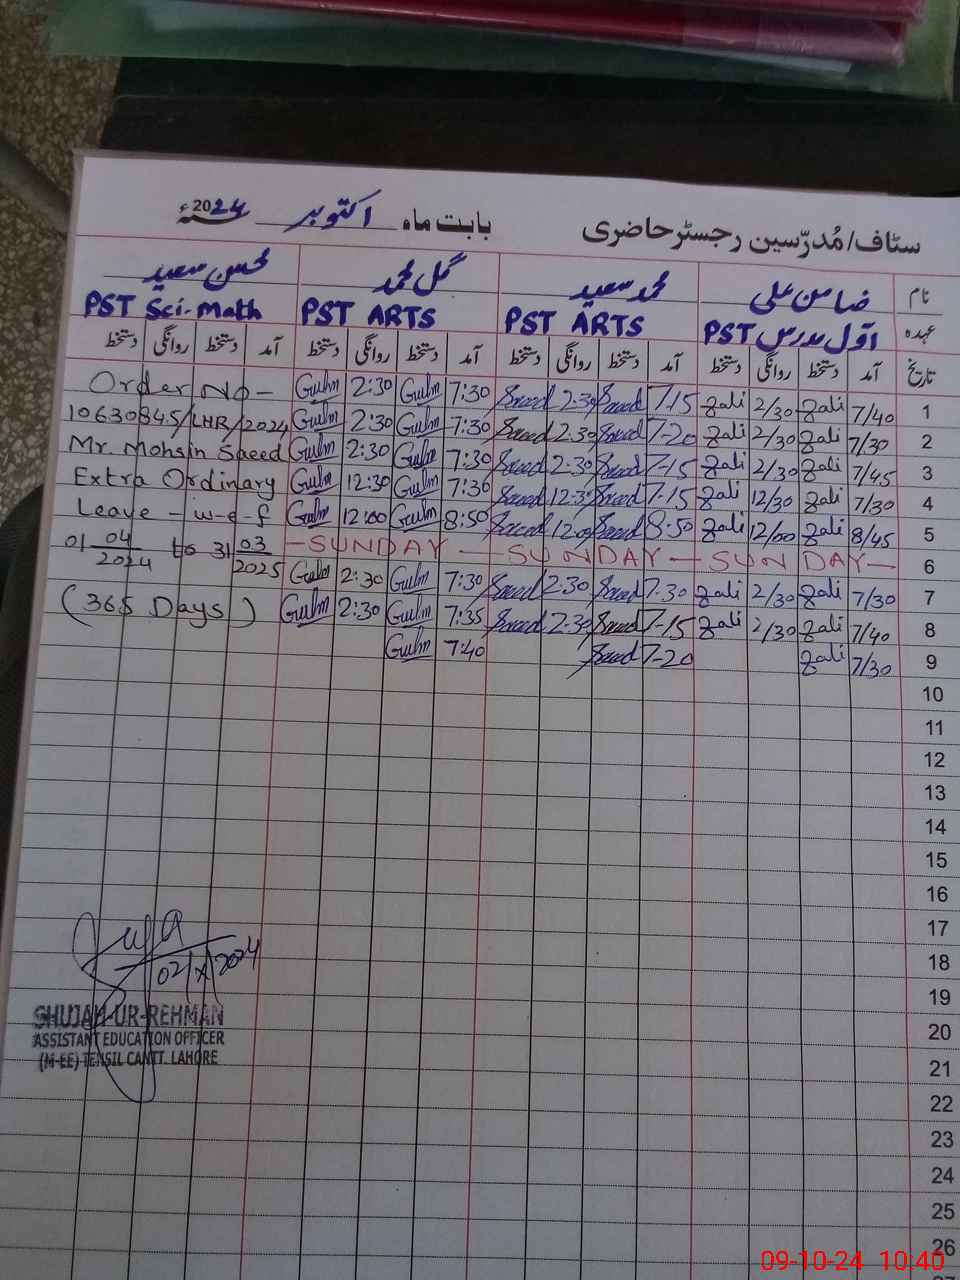 سٹاف/مُدرّسین رجسٹر حاضری بابت ماہ اکتوبر 2024ء
نام ضامن علی محمد سعید گل محمد محسن سعید
عہدہ اوّل مدرس PST PST ARTS PST ARTS PST Sci-Math
تاریخ آمد دستخط روانگی دستخط آمد دستخط روانگی دستخط آمد دستخط روانگی دستخط آمد دستخط روانگی دستخط
Order No - Gulm 2:30 Gulm 7:30 Saeed 2-30 Saeed 7-15 Zali 2/30 Zali 7/40 1
10630845/LHR/2024 Gulm 2:30 Gulm 7:30 Saeed 2-30 Saeed 7-20 Zali 2/30 Zali 7/30 2
Mr. Mohsin Saeed Gulm 2:30 Gulm 7:30 Saeed 2-30 Saeed 7-15 Zali 2/30 Zali 7/45 3
Extra Ordinary Gulm 12:30 Gulm 7:30 Saeed 12-30 Saeed 7-15 Zali 12/30 Zali 7/30 4
Leave - w-e-f Gulm 12:00 Gulm 8:50 Saeed 12-00 Saeed 8-50 Zali 12/00 Zali 8/45 5
01 04/2024 to 31 03/2025 - SUNDAY - SUNDAY - SUNDAY - 6
Gulm 2:30 Gulm 7:30 Saeed 2-30 Saeed 7-30 Zali 2/30 Zali 7/30 7
(365 Days) Gulm 2:30 Gulm 7:35 Saeed 2-30 Saeed 7-15 Zali 2/30 Zali 7/40 8
Gulm 7:40 Saeed 7-20 Zali 7/30 9
10
11
12
13
14
15
16
17
18
19
20
21
22
23
24
25
26
02/X/2024
SHUJAH-UR-REHMAN
ASSISTANT EDUCATION OFFICER
(M-EE) TEHSIL CANTT. LAHORE
09-10-24 10:40